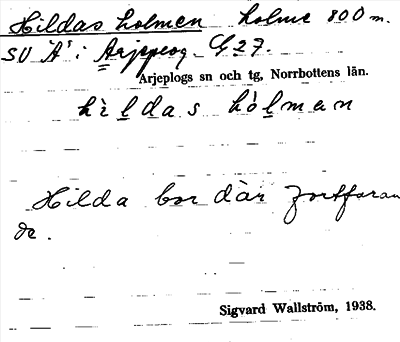 Hildas holmen holme 800 m.
SV "A" i Arjeplog G 27.
Arjeplogs sn och tg, Norrbottens län.
hìldas hòlman
Hilda bor där fortfaran
de.
Sigvard Wallström, 1938.